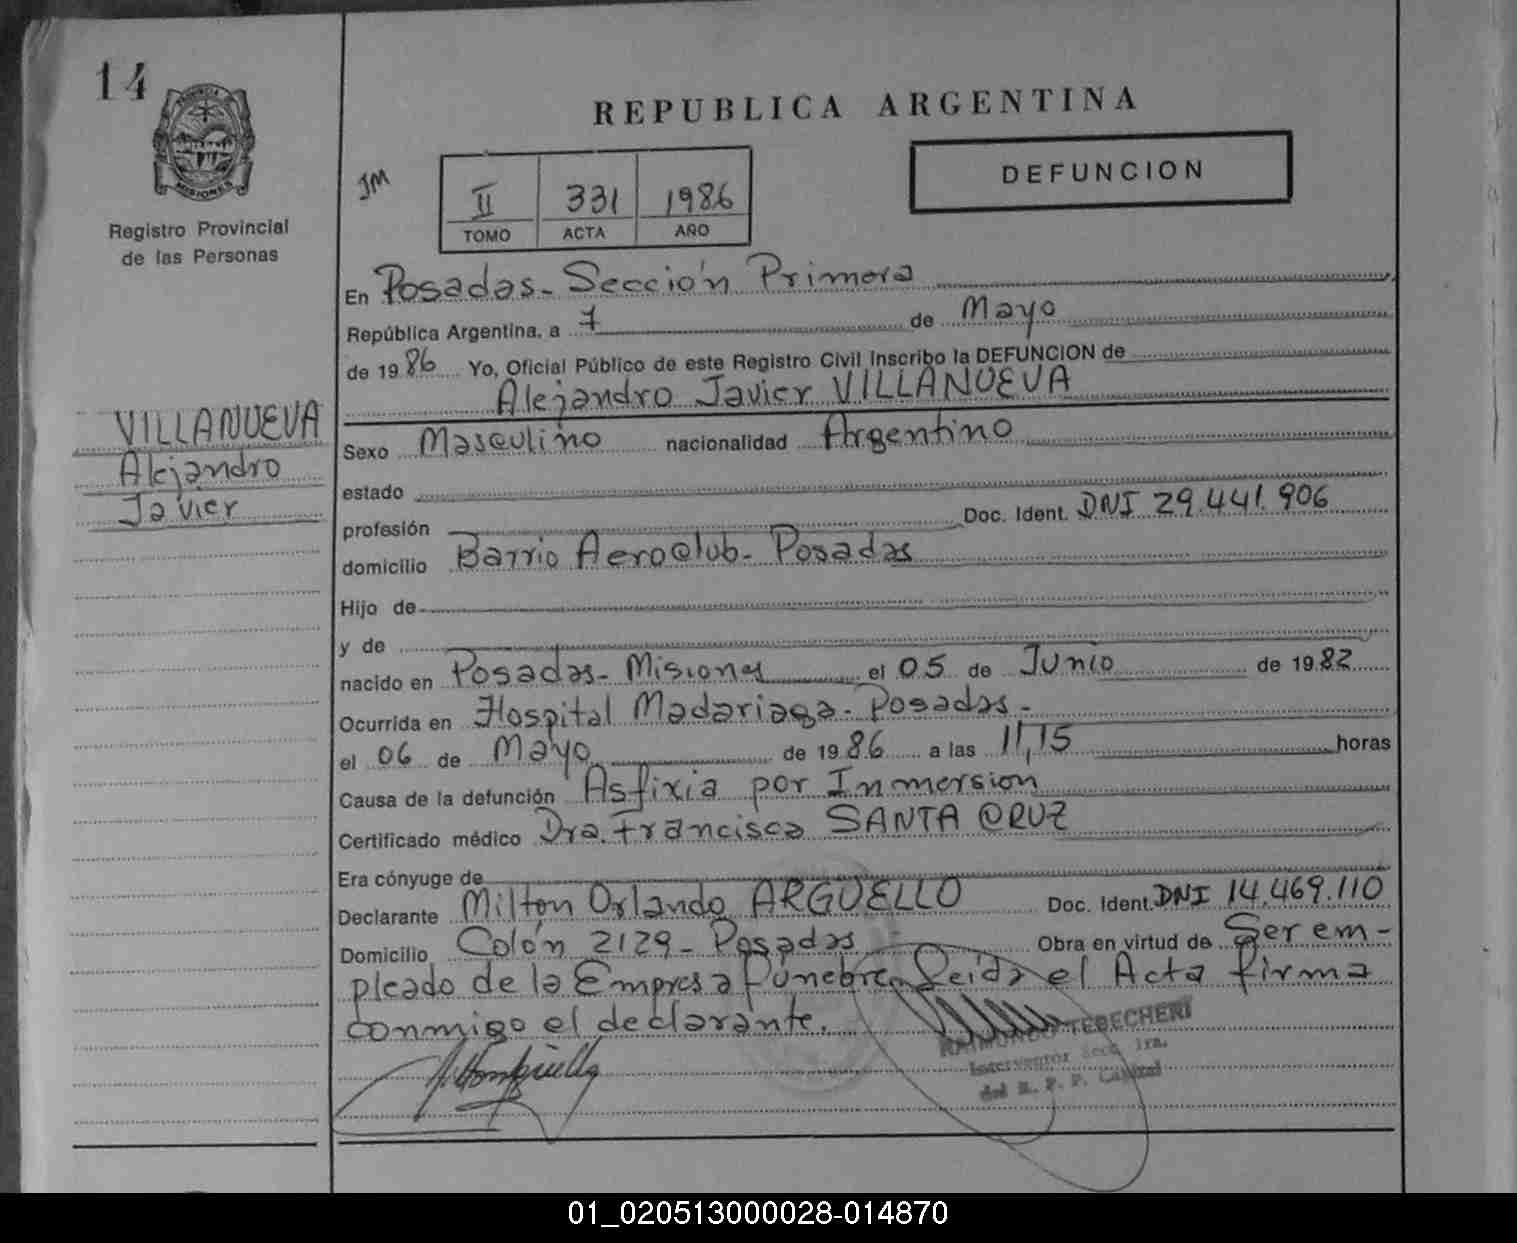 14
PROVINCIA DE
MISIONES
Registro Provincial
de las Personas
REPUBLICA ARGENTINA
JM
II 331 1986
TOMO ACTA AÑO
DEFUNCION
En Posadas - Sección Primera
República Argentina, a 7 de Mayo
de 1986 Yo, Oficial Público de este Registro Civil Inscribo la DEFUNCION de
Alejandro Javier VILLANUEVA
VILLANUEVA
Alejandro
Javier
Sexo Masculino nacionalidad Argentino
estado
profesión Doc. Ident. DNI 29.441.906
domicilio Barrio Aeroclub - Posadas
Hijo de
y de
nacido en Posadas - Misiones el 05 de Junio de 1982
Ocurrida en Hospital Madariaga - Posadas -
el 06 de Mayo de 1986 a las 11,15 horas
Causa de la defunción Asfixia por Inmersion
Certificado médico Dra. Francisca SANTA CRUZ
Era cónyuge de
Declarante Milton Orlando ARGUELLO Doc. Ident. DNI 14.469.110
Domicilio Colón 2129 - Posadas Obra en virtud de Ser em-
pleado de la Empresa Fúnebre. Leida el Acta firma
conmigo el declarante.
RAIMUNDO TEBECHERI
Interventor Secc. 1ra.
del R. P. P. Capital
01_020513000028-014870